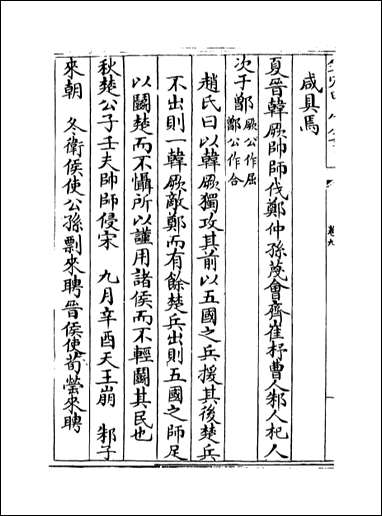 咸具焉
夏晉韓厥帥師伐鄭仲孫蔑會齊崔杼曹人邾人杞人
次于鄫厥公作屈鄫公作合
趙氏曰以韓厥獨攻其前以五國之兵援其後楚兵
不出則一韓厥敵鄭而有餘楚兵出則五國之師足
以鬭楚而不懾所以謹用諸侯而不輕鬭其民也
秋楚公子壬夫帥師侵宋　九月辛酉天王崩　邾子
來朝　冬衛侯使公孫剽來聘晉侯使荀罃來聘